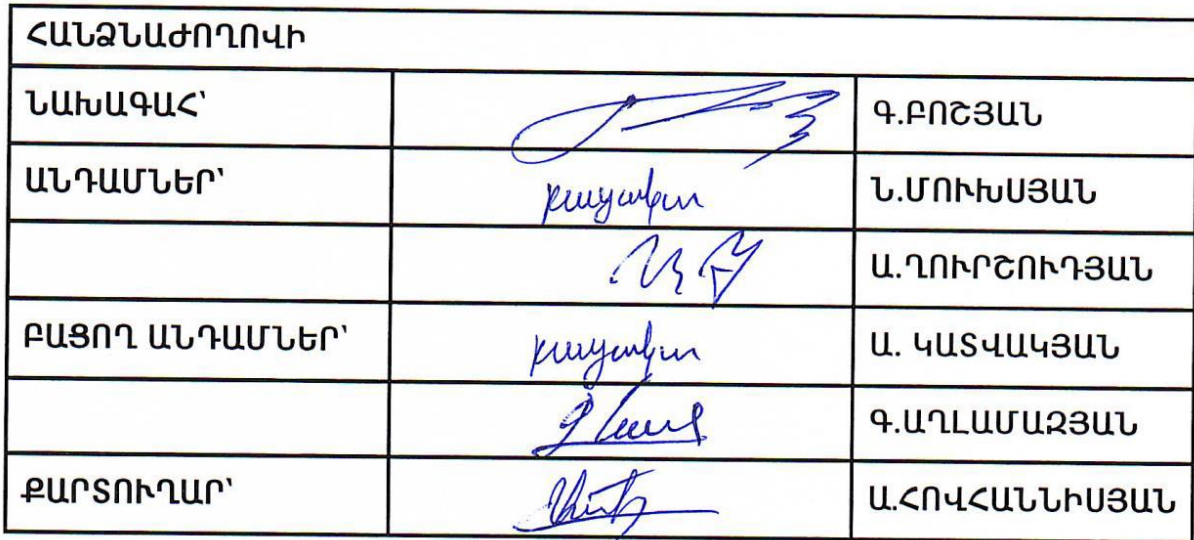 ՀԱՆՁՆԱԺՈՂՈՎԻ
ՆԱԽԱԳԱՀ՝ Գ.ԲՈՇՅԱՆ
ԱՆԴԱՄՆԵՐ՝ բացակա Ն.ՄՈՒԽՍՅԱՆ
Ա.ՂՈՒՐՇՈՒԴՅԱՆ
ԲԱՑՈՂ ԱՆԴԱՄՆԵՐ՝ բացակա Ա. ԿԱՏՎԱԿՅԱՆ
Գ.ԱՂԼԱՄԱԶՅԱՆ
ՔԱՐՏՈՒՂԱՐ՝ Ա.ՀՈՎՀԱՆՆԻՍՅԱՆ